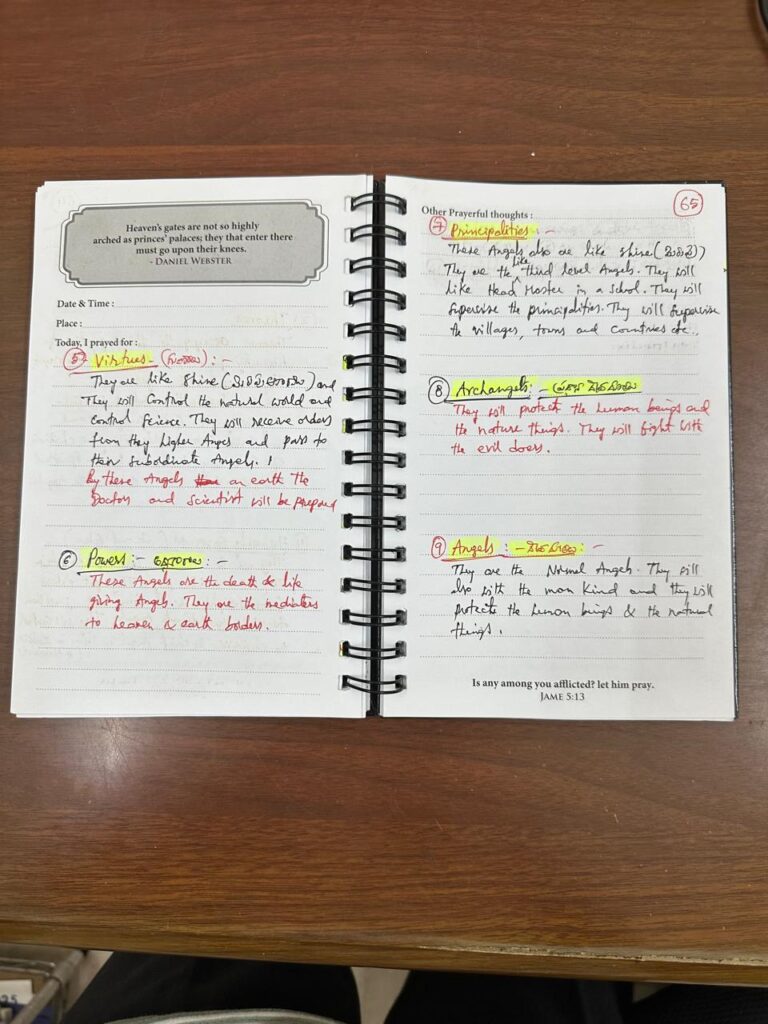 Heaven's gates are not so highly
arched as princes' palaces; they that enter there
must go upon their knees.
- DANIEL WEBSTER
Date & Time :
Place :
Today, I prayed for :
5 Virtues - :-
They are like Shine and
They will Control the natural world and
control Science. They will receive orders
from they higher Anges and pass to
their Subordinate Angels.
By these Angels on earth the
Doctors and Scientist will be prepared
6 Powers :- :-
These Angels are the death & life
giving Angels. They are the mediaters
to heaven & earth borders.
65
Other Prayerful thoughts :
7 Principalities :-
These Angels also are like Shine
They are the like third level Angels. They will
like Head Master in a School. They will
Supervise the principalities. They will Supervise
the villages, towns and Countries etc..
8 Archangels: -
They will protect the human beings and
the nature things. They will fight with
the evil doers.
9 Angels : - :-
They are the Normal Angels. They will
also with the man kind and they will
protects the human beings & the natural
things.
Is any among you afflicted? let him pray.
JAME 5:13